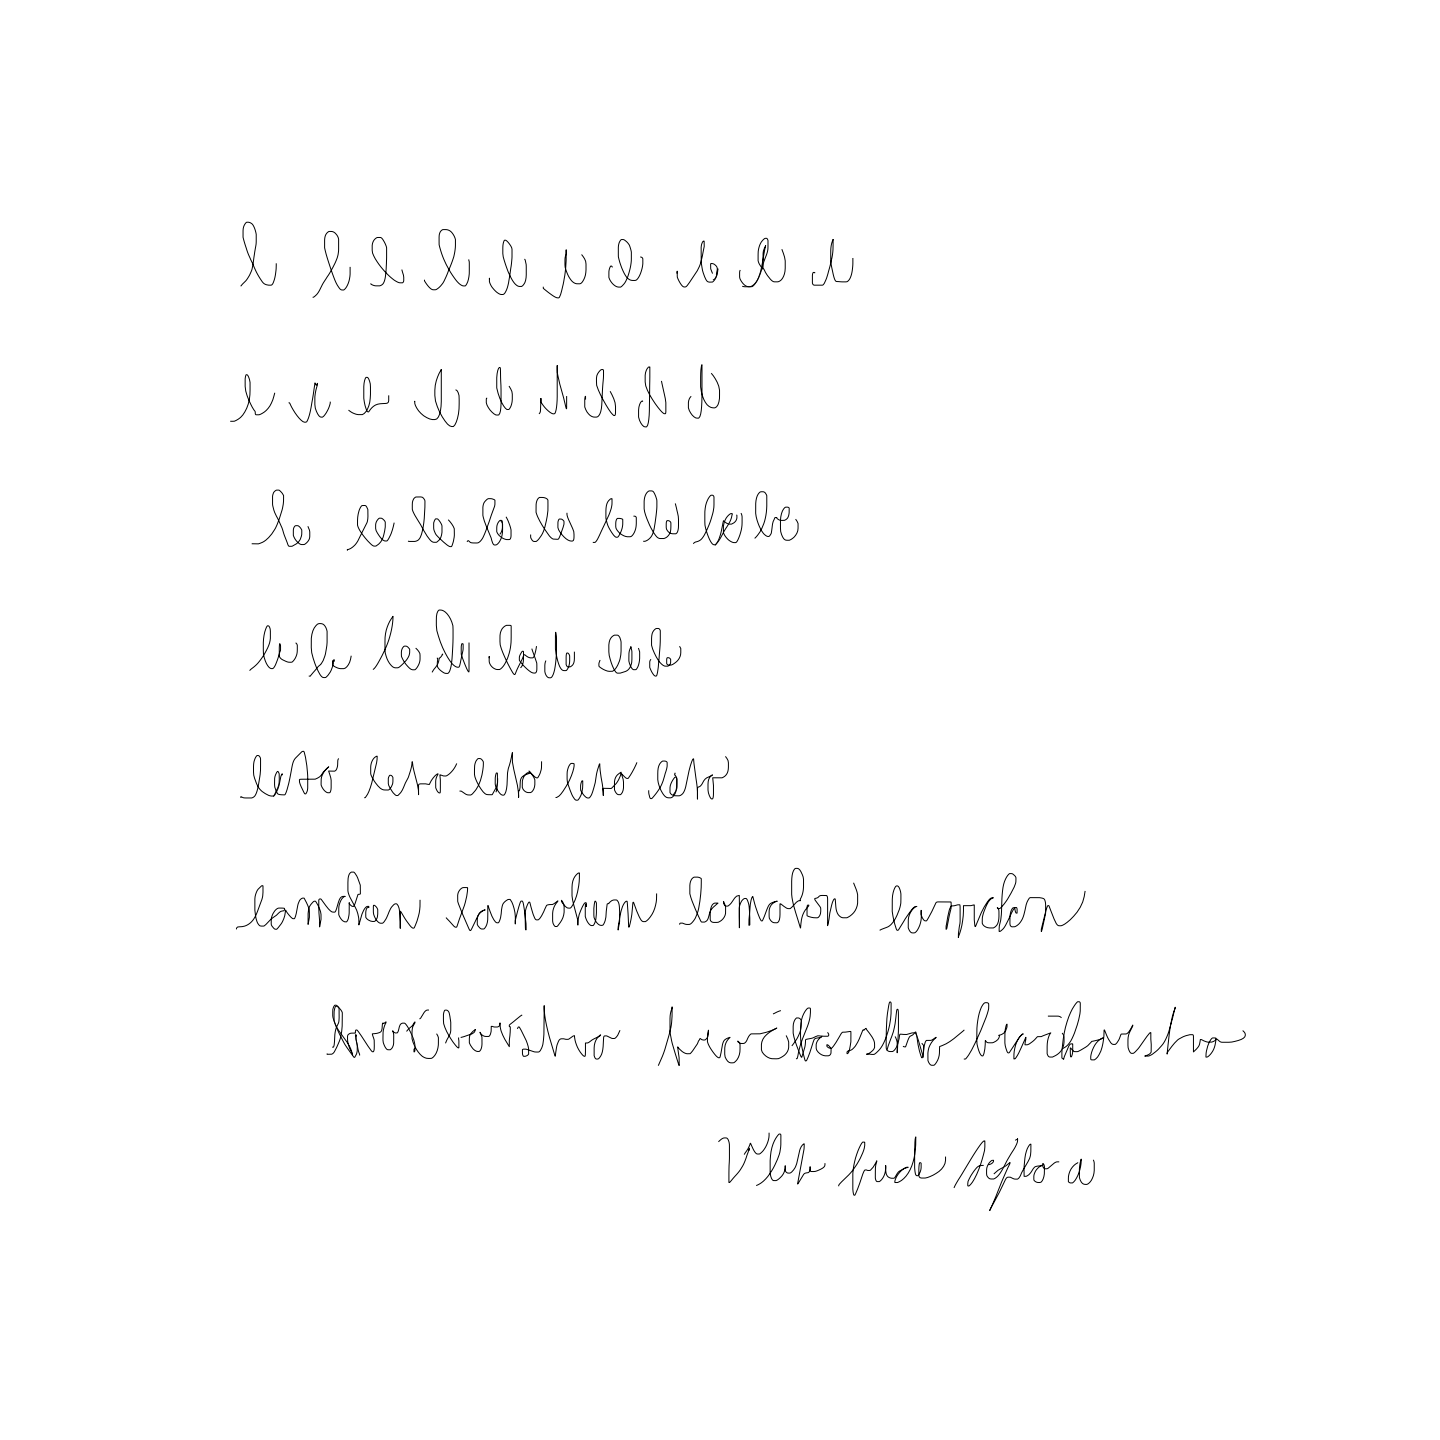 l l l l l l l l l l
l l l l l l l l l
le le le le le le le le le
le le le le le le le le
leto leto leto leto leto
lamoken lamoken lamoken lamoken
hračkárstvo hračkárstvo hračkárstvo
V lete bude teplo a